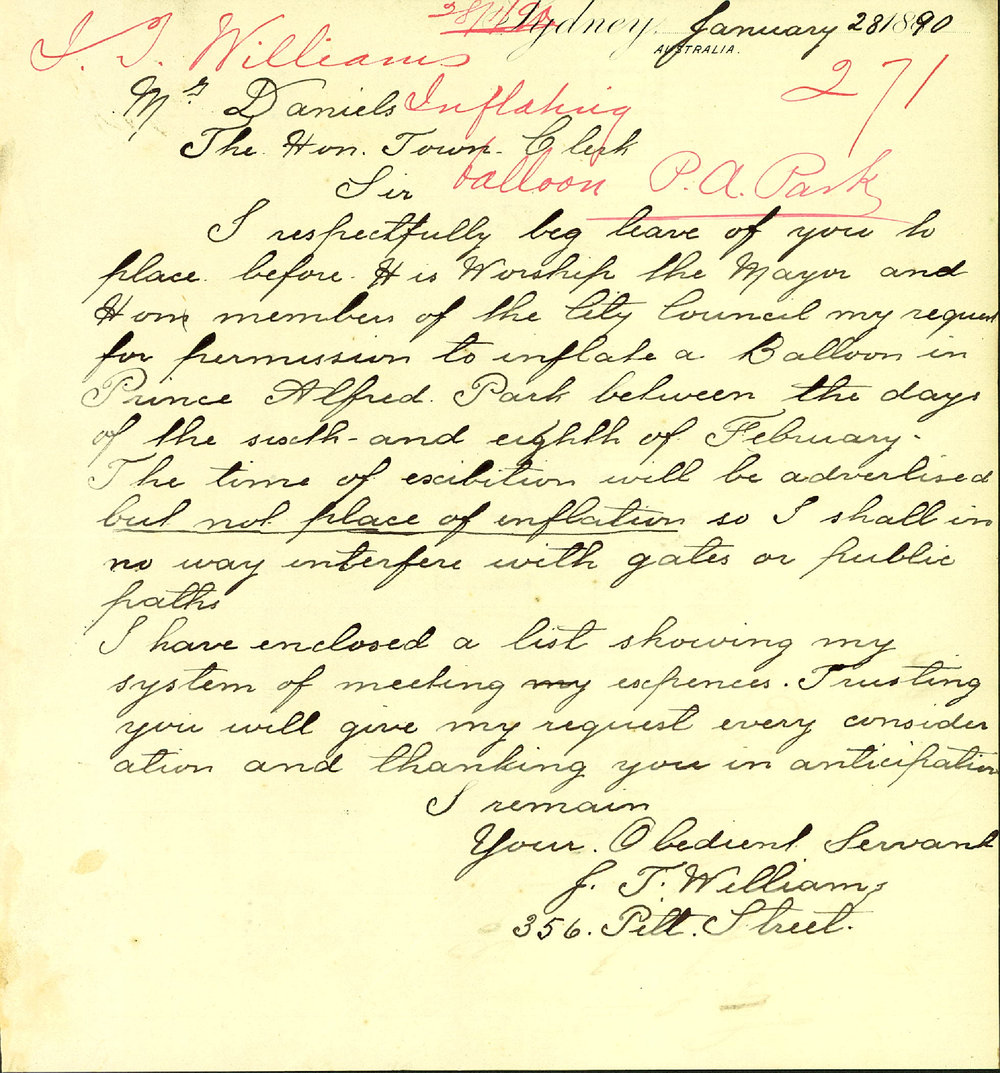 28/1/90 Sydney, January 28 1890
AUSTRALIA.
J. T. Williams
271
Mr Daniels Inflating
The Hon. Town Clerk
Sir balloon P. A. Park
I respectfully beg leave of you to
place before His Worship the Mayor and
Hon members of the City Council my request
for permission to inflate a Balloon in
Prince Alfred. Park between the days
of the sixth - and eighth of February.
The time of exibition will be advertised
but not place of inflation so I shall in
no way interfere with gates or public
paths
I have enclosed a list showing my
system of meeting my expences. Trusting
you will give my request every consider
ation and thanking you in anticipation
I remain
Your. Obedient Servant
J. T. Williams
356. Pitt. Street.